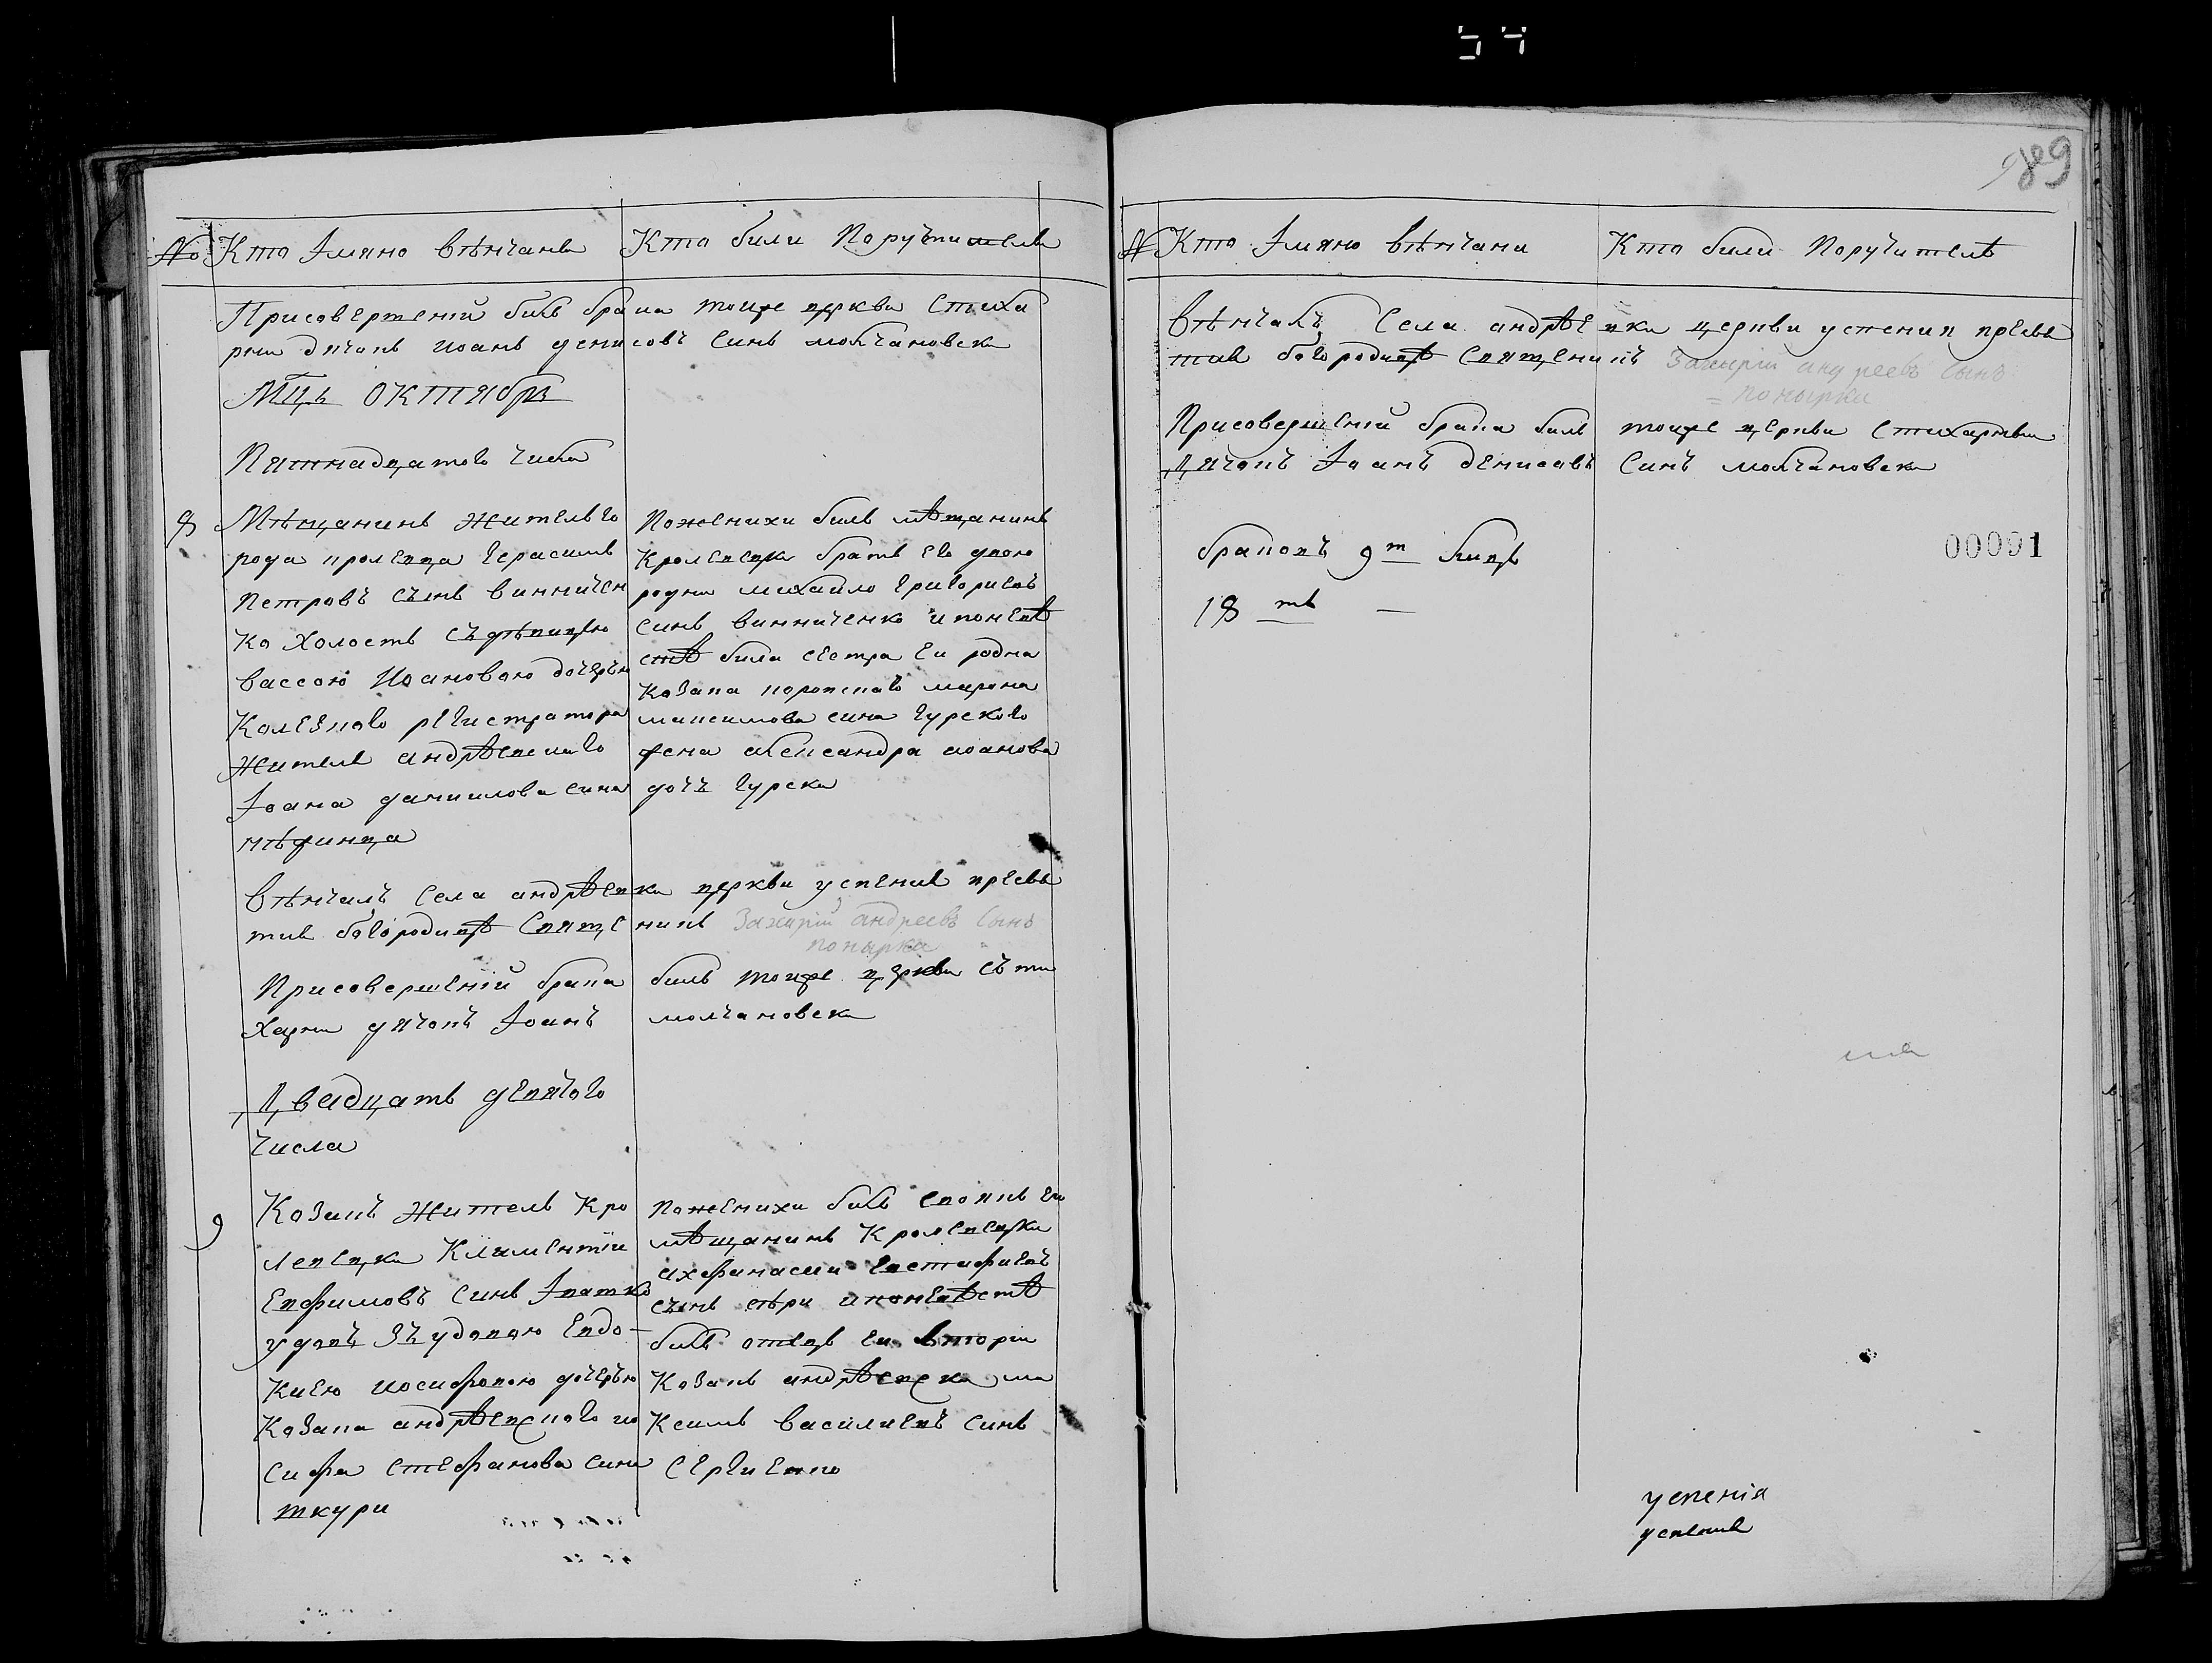 989
№ Кто Імяно вѣнчани Кто били Поручители
Присовершеній билъ брака тоиже церкви стиха
рни дячокъ иоанъ денисовъ синъ молчановски
Мцъ Октября
Пятнадцатого числа
8 Мѣщанинъ жителъ го
рода кролевца герасимъ
петровъ сынъ винничен
ко холостъ съ дѣвицею
вассою Иоановою дочерью
колезкого регистратора
жителя андрѣевскаго
Іоана даниилова сина
нѣжинца
Пожеихи билъ мѣщанинъ
кролевецки братъ его двою
родни михайло григориевъ
синъ винниченко и поневѣ
стѣ била сестра еи родна
козака коропскаго марона
максимова сина гурского
жена александра иоанова
дочъ гурска
вѣнчалъ села андрѣевки церкви успения пресвя
тия богородицѣ священикъ Захарій андреевъ сынъ
понырка
Присовершеній брака билъ тоиже церкви сти
харни дячокъ Іоанъ молчановски
Двадцать девятого
числа
9 Козакъ житель кро
левецки климентіи
евфимовъ синъ Ігнатко
удовъ зъ удовою евдо-
киею иосифовою дочерью
козака андрѣевского ио
сифа стефанова сина
ткури
пожеихи билъ своякъ ги
мѣщанинъ кролевецки
афанасии евстафиевъ
сынъ сѣри и поневѣстѣ
билъ отецъ еи втории
козакъ андрѣевски ма
ксимъ василиевъ синъ
сергиенко
№ Кто Імяно вѣнчани Кто били Поручителѣ
вѣнчалъ села андрѣевки церкви успения пресвя
тия богородицѣ священикъ Захарій андреевъ сынъ
понырка
Присовершеній брака билъ тоиже церкви стихарнии
Дячокъ Іоанъ денисовъ синъ молчановски
браковъ 9т лицъ
00091
18 тъ —
успенія
успения